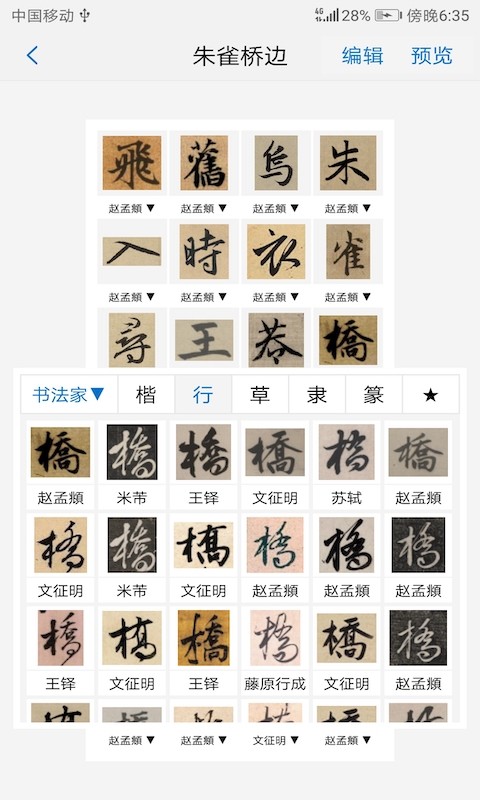 中国移动 4G 28% 傍晚6:35
朱雀桥边 编辑 预览
飛 舊 烏 朱
赵孟頫▼ 赵孟頫▼ 赵孟頫▼ 赵孟頫▼
入 時 衣 雀
赵孟頫▼ 赵孟頫▼ 赵孟頫▼ 赵孟頫▼
尋 王 巷 橋
书法家▼ 楷 行 草 隶 篆 ★
橋 橋 橋 橋 橋 橋
赵孟頫 米芾 王铎 文征明 苏轼 赵孟頫
橋 橋 橋 橋 橋 橋
文征明 米芾 文征明 赵孟頫 赵孟頫 赵孟頫
橋 橋 橋 橋 橋 橋
王铎 文征明 王铎 藤原行成 文征明 赵孟頫
赵孟頫▼ 赵孟頫▼ 文征明▼ 赵孟頫▼